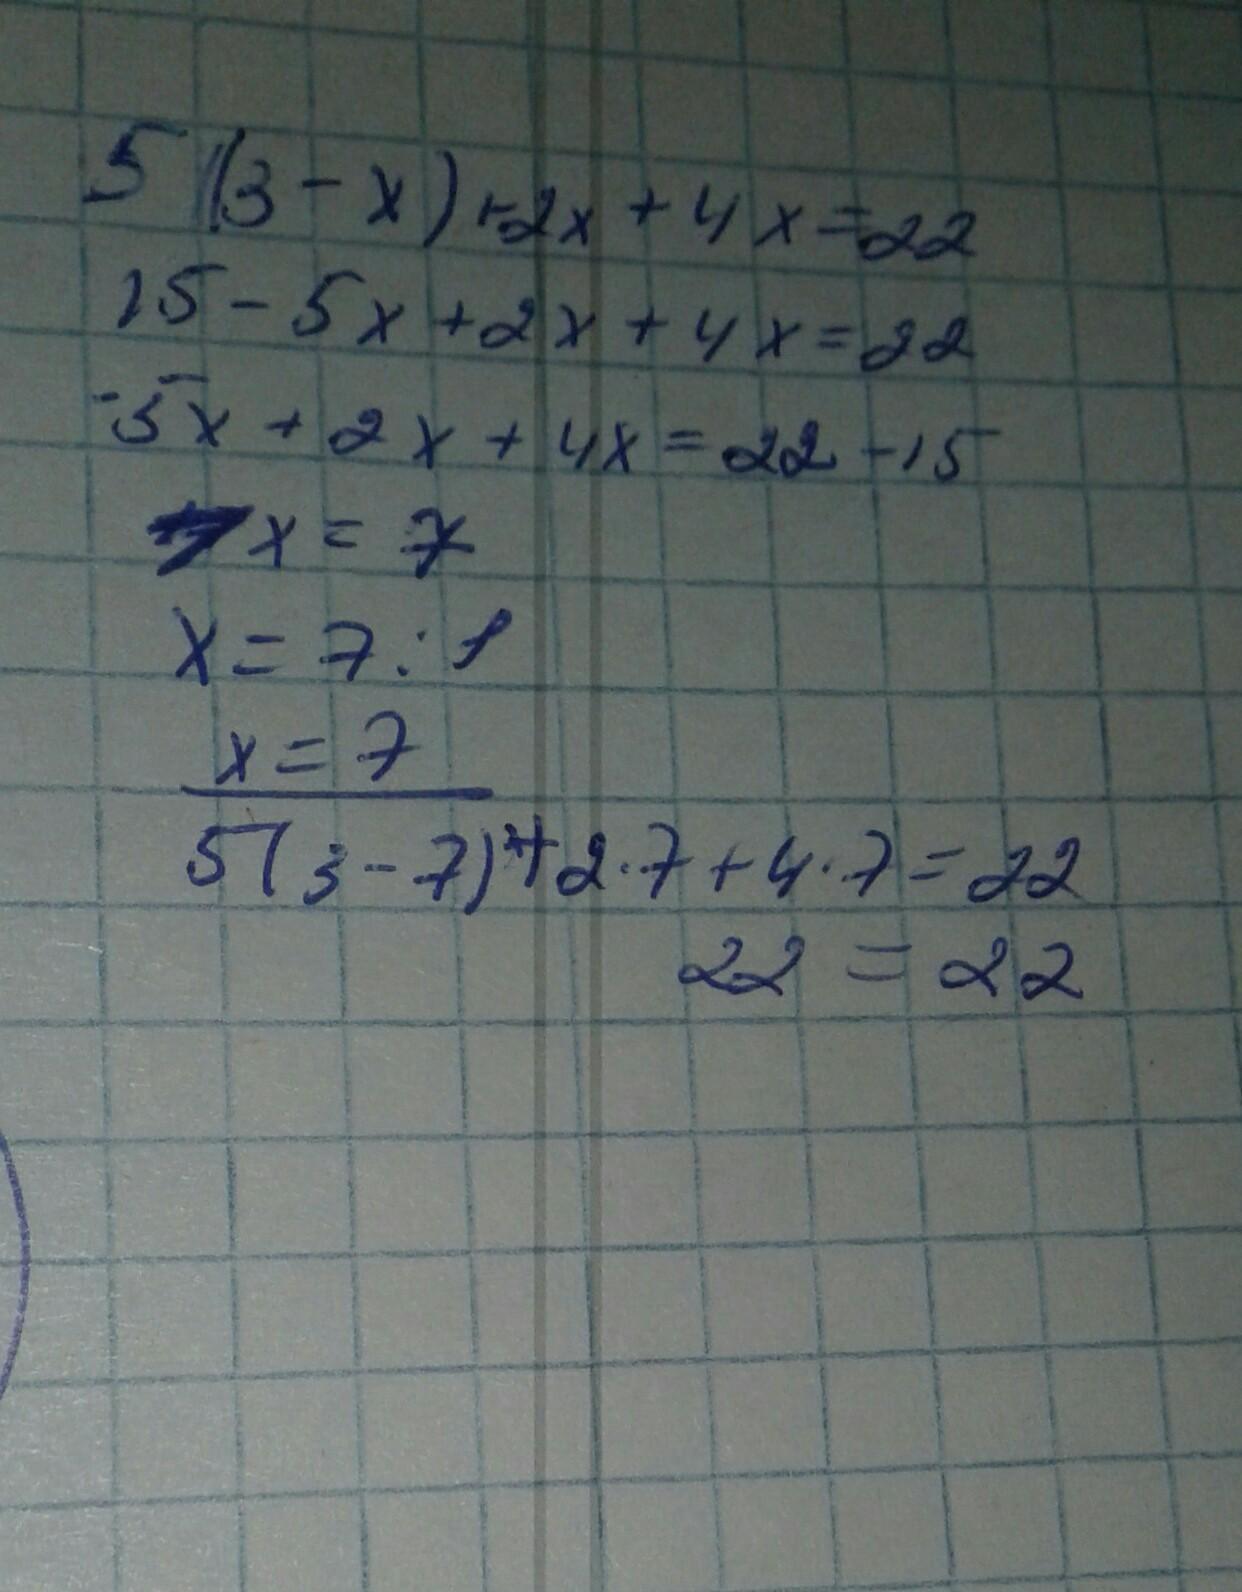 5(3-x)+2x+4x=22
15-5x+2x+4x=22
-5x+2x+4x=22-15
x=7
x=7:1
x=7
5(3-7)+2·7+4·7=22
22=22